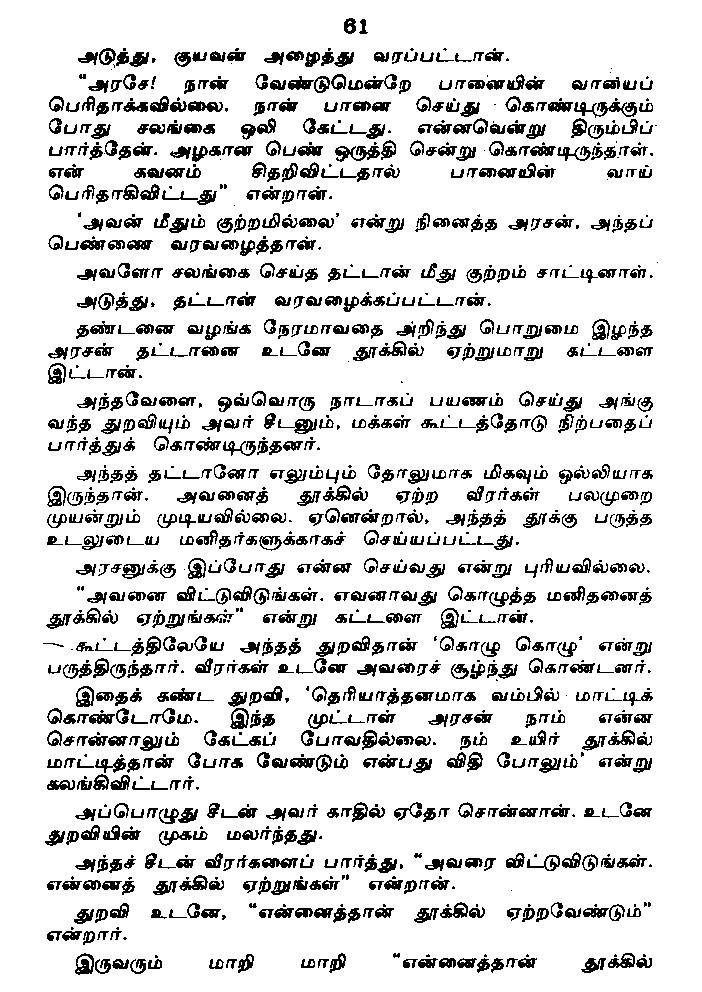 61
அடுத்து, குயவன் அழைத்து வரப்பட்டான்.
"அரசே! நான் வேண்டுமென்றே பானையின் வாயைப்
பெரிதாக்கவில்லை. நான் பானை செய்து கொண்டிருக்கும்
போது சலங்கை ஒலி கேட்டது. என்னவென்று திரும்பிப்
பார்த்தேன். அழகான பெண் ஒருத்தி சென்று கொண்டிருந்தாள்.
என் கவனம் சிதறிவிட்டதால் பானையின் வாய்
பெரிதாகிவிட்டது" என்றான்.
'அவன் மீதும் குற்றமில்லை' என்று நினைத்த அரசன், அந்தப்
பெண்ணை வரவழைத்தான்.
அவளோ சலங்கை செய்த தட்டான் மீது குற்றம் சாட்டினாள்.
அடுத்து, தட்டான் வரவழைக்கப்பட்டான்.
தண்டனை வழங்க நேரமாவதை அறிந்து பொறுமை இழந்த
அரசன் தட்டானை உடனே தூக்கில் ஏற்றுமாறு கட்டளை
இட்டான்.
அந்தவேளை, ஒவ்வொரு நாடாகப் பயணம் செய்து அங்கு
வந்த துறவியும் அவர் சீடனும், மக்கள் கூட்டத்தோடு நிற்பதைப்
பார்த்துக் கொண்டிருந்தனர்.
அந்தத் தட்டானோ எலும்பும் தோலுமாக மிகவும் ஒல்லியாக
இருந்தான். அவனைத் தூக்கில் ஏற்ற வீரர்கள் பலமுறை
முயன்றும் முடியவில்லை. ஏனென்றால், அந்தத் தூக்கு பருத்த
உடலுடைய மனிதர்களுக்காகச் செய்யப்பட்டது.
அரசனுக்கு இப்போது என்ன செய்வது என்று புரியவில்லை.
"அவனை விட்டுவிடுங்கள். எவனாவது கொழுத்த மனிதனைத்
தூக்கில் ஏற்றுங்கள்" என்று கட்டளை இட்டான்.
கூட்டத்திலேயே அந்தத் துறவிதான் 'கொழு கொழு' என்று
பருத்திருந்தார். வீரர்கள் உடனே அவரைச் சூழ்ந்து கொண்டனர்.
இதைக் கண்ட துறவி, 'தெரியாத்தனமாக வம்பில் மாட்டிக்
கொண்டோமே. இந்த முட்டாள் அரசன் நாம் என்ன
சொன்னாலும் கேட்கப் போவதில்லை. நம் உயிர் தூக்கில்
மாட்டித்தான் போக வேண்டும் என்பது விதி போலும்' என்று
கலங்கிவிட்டார்.
அப்பொழுது சீடன் அவர் காதில் ஏதோ சொன்னான். உடனே
துறவியின் முகம் மலர்ந்தது.
அந்தச் சீடன் வீரர்களைப் பார்த்து, "அவரை விட்டுவிடுங்கள்.
என்னைத் தூக்கில் ஏற்றுங்கள்" என்றான்.
துறவி உடனே, "என்னைத்தான் தூக்கில் ஏற்றவேண்டும்"
என்றார்.
இருவரும் மாறி மாறி "என்னைத்தான் தூக்கில்